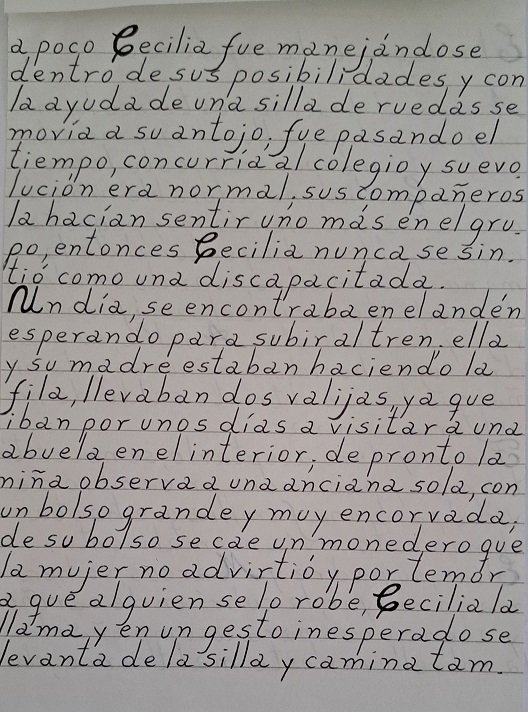 a poco Cecilia fue manejándose
dentro de sus posibilidades y con
la ayuda de una silla de ruedas se
movía a su antojo, fue pasando el
tiempo, concurría al colegio y su evo.
lución era normal, sus compañeros
la hacían sentir uno más en el gru.
po, entonces Cecilia nunca se sin.
tió como una discapacitada.
Un día, se encontraba en el andén
esperando para subir al tren. ella
y su madre estaban haciendo la
fila, llevaban dos valijas, ya que
iban por unos días a visitar a una
abuela en el interior; de pronto la
niña observa a una anciana sola, con
un bolso grande y muy encorvada,
de su bolso se cae un monedero que
la mujer no advirtió y por temor
a que alguien se lo robe, Cecilia la
llama, y en un gesto inesperado se
levanta de la silla y camina tam.